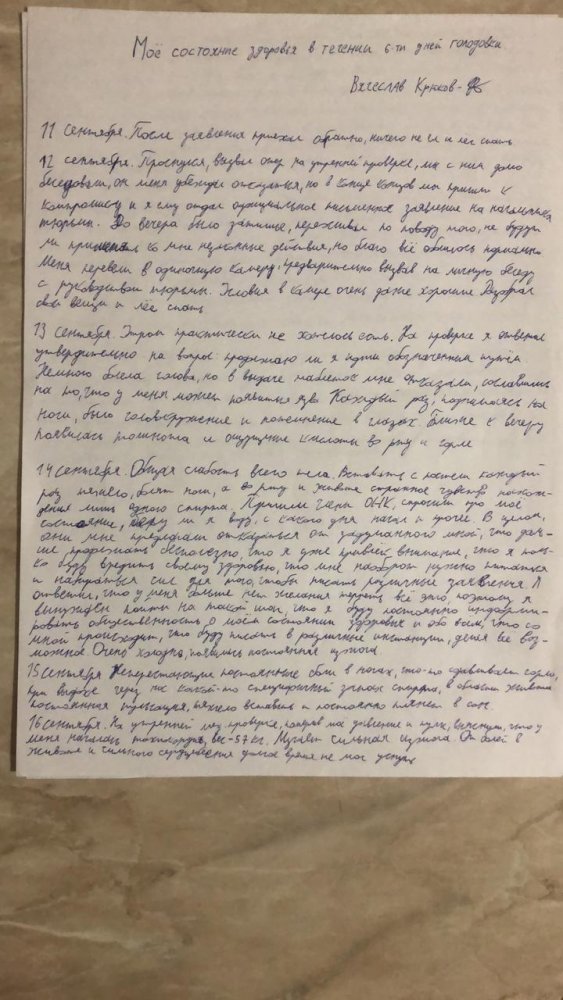 Моё состояние здоровья в течении 6-ти дней голодовки
Вячеслав Крюков
11 сентября. После заявления приехал обратно, ничего не ел и лёг спать
12 сентября. Проснулся, вызвал опер на утренней проверке, мы с ним долго
беседовали, он меня убеждал отказаться, но в конце концов мы пришли к
компромиссу и я ему отдал официальное письменное заявление на начальника
тюрьмы. До вечера было затишье, переживал по поводу того, не будут
ли применять ко мне незаконные действия, но благо всё обошлось нормально
Меня перевели в одиночную камеру, предварительно вызвав на личную беседу
с руководством тюрьмы. Условия в камере очень даже хорошие Разобрал
свои вещи и лёг спать
13 сентября. Утром практически не хотелось есть. На проверке я ответил
утвердительно на вопрос продолжаю ли я идти обозначенным путём
Немного болела голова, но в выдаче таблеток мне отказали, сославшись
на то, что у меня может появиться язва Каждый раз, поднимаясь на
ноги, было головокружение и потемнение в глазах Ближе к вечеру
появилась тошнота и ощущение кислоты во рту и горле
14 сентября. Общая слабость всего тела. Вставать с постели каждый
раз тяжело, болят ноги, а во рту и животе странное чувство нахож-
дения лишь одного спирта. Пришли члены ОНК, спросили про моё
состояние, пью ли я воду, с какого дня начал и прочее. В целом,
они мне предлагали отказаться от задуманного мной, что даль-
ше продолжать бесполезно, что я уже привлёк внимание, что я толь-
ко буду вредить своему здоровью, что мне наоборот нужно питаться
и набираться сил для того, чтобы писать различные заявления. Я
ответил, что у меня больше нет желания терпеть всё это поэтому я
вынужден пойти на такой шаг, что я буду постоянно информи-
ровать общественность о моём состоянии здоровья и обо всём, что со
мной происходит, что буду писать в различные инстанции, делая всё воз-
можное. Очень холодно, появилась постоянная изжога.
15 сентября Непрекращающиеся постоянные боли в ногах, что-то сдавливает горло,
при выдохе через нос какой-то специфичный запах спирта, в области живота
постоянная пульсация, тяжело вставать и постоянно клонит в сон.
16 сентября. На утренней мед. проверке, померив мне давление и пульс, выяснили, что у
меня началась тахикардия, вес - 57 кг. Мучает сильная изжога. От болей в
животе и сильного сердцебиения долгое время не мог уснуть